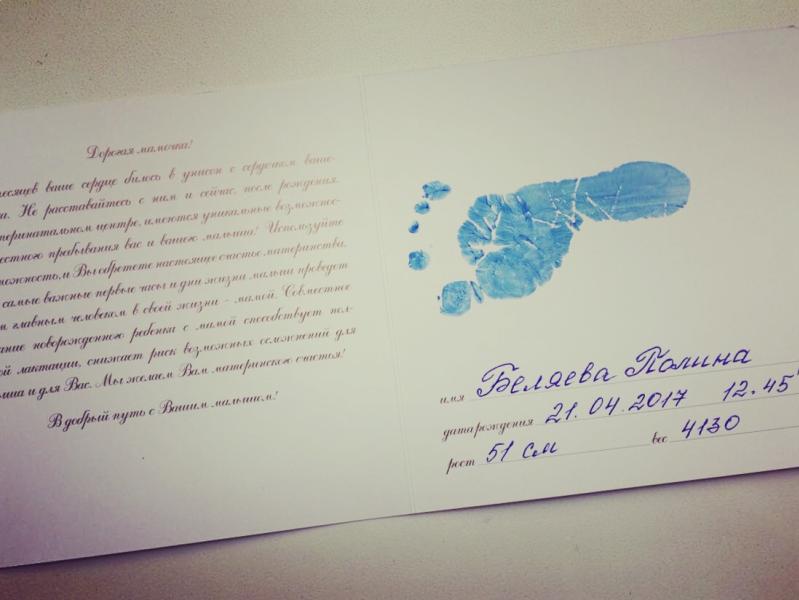 Дорогая мамочка!
месяцев ваше сердце билось в унисон с сердечком ваше-
Не расставайтесь с ним и сейчас, после рождения.
имеются уникальные возможнос-
местного пребывания вас и вашего малыша! Используйте
и Вы обретете настоящее счастье материнства.
самые важные первые часы и дни жизни малыш проведет
главным человеком в своей жизни – мамой. Совместное
новорожденного ребенка с мамой способствует пол-
лактации, снижает риск возможных осложнений для
и для Вас. Мы желаем Вам материнского счастья!
В добрый путь с Вашим малышом!
имя Беляева Полина
дата рождения 21.04.2017 12.45
рост 51 см вес 4130